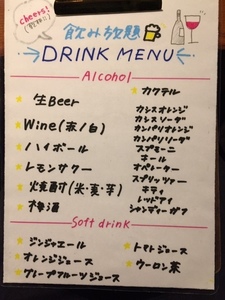 cheers!
飲み放題
DRINK MENU
Alcohol
生Beer
Wine(赤/白)
ハイボール
レモンサワー
焼酎(米・麦・芋)
梅酒
カクテル
カシスオレンジ
カシスソーダ
カンパリオレンジ
カンパリソーダ
スプモーニ
キール
オペレーター
スプリッツァー
キティ
レッドアイ
シャンディーガフ
Soft drink
ジンジャエール
オレンジジュース
グレープフルーツジュース
トマトジュース
ウーロン茶